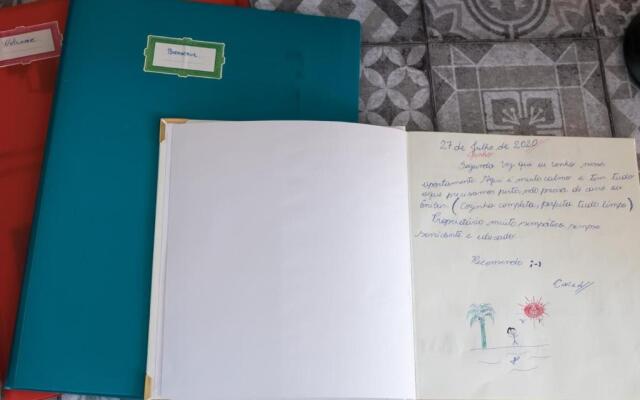 Welcome
Bienvenue
27 de Julho de 2020
Junho
Segunda vez que eu venho nesse
apartamento. Aqui é muito calmo e tem tudo
que precisamos perto, não precisa de carro ou
ônibus (Cozinha completa, perfeita tudo limpo)
Proprietário muito simpático sempre
sorridente e educado.
Recomendo ;-)